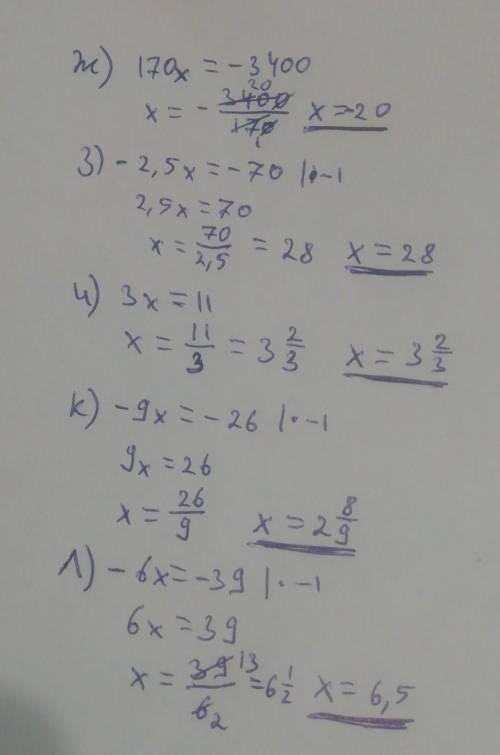 ж) 170x = -3400
x = - 3400/170 20 1 x = -20
з) -2,5x = -70 |· -1
2,5x = 70
x = 70/2,5 = 28 x = 28
и) 3x = 11
x = 11/3 = 3 2/3 x = 3 2/3
к) -9x = -26 |· -1
9x = 26
x = 26/9 x = 2 8/9
л) -6x = -39 |· -1
6x = 39
x = 39/6 13 2 = 6 1/2 x = 6,5